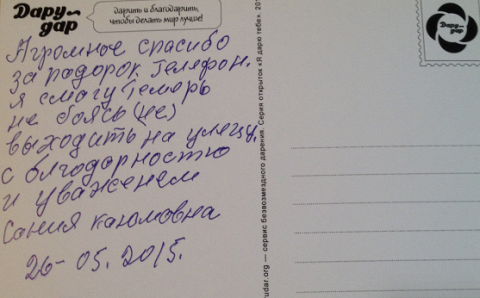 Дару-дар
дарить и благодарить,
чтобы делать мир лучше!
Агромное спасибо
за падорок Телефон.
я смагу Теморь
не боясь (не)
выходить на улецу,
с блгодарностью
и уваженем
Сания каюмовна
26-05.2015.
Дару-дар
rudar.org — сервис безвозмездного дарения. Серия открыток «Я дарю тебе». 20